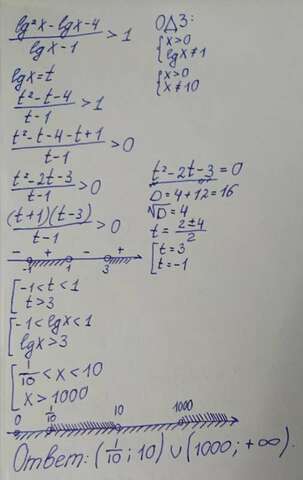 (lg²x - lgx - 4)/(lgx - 1) > 1
ОДЗ:
{x>0
lgx≠1
{x>0
x≠10
lgx = t
(t² - t - 4)/(t - 1) > 1
(t² - t - 4 - t + 1)/(t - 1) > 0
(t² - 2t - 3)/(t - 1) > 0
((t+1)(t-3))/(t - 1) > 0
t² - 2t - 3 = 0
D = 4 + 12 = 16
√D = 4
t = (2 ± 4)/2
[t = 3
t = -1
- + - +
-1 1 3
[-1 < t < 1
t > 3
[-1 < lgx < 1
lgx > 3
[1/10 < x < 10
x > 1000
0 1/10 10 1000
Ответ: (1/10; 10) ∪ (1000; +∞).